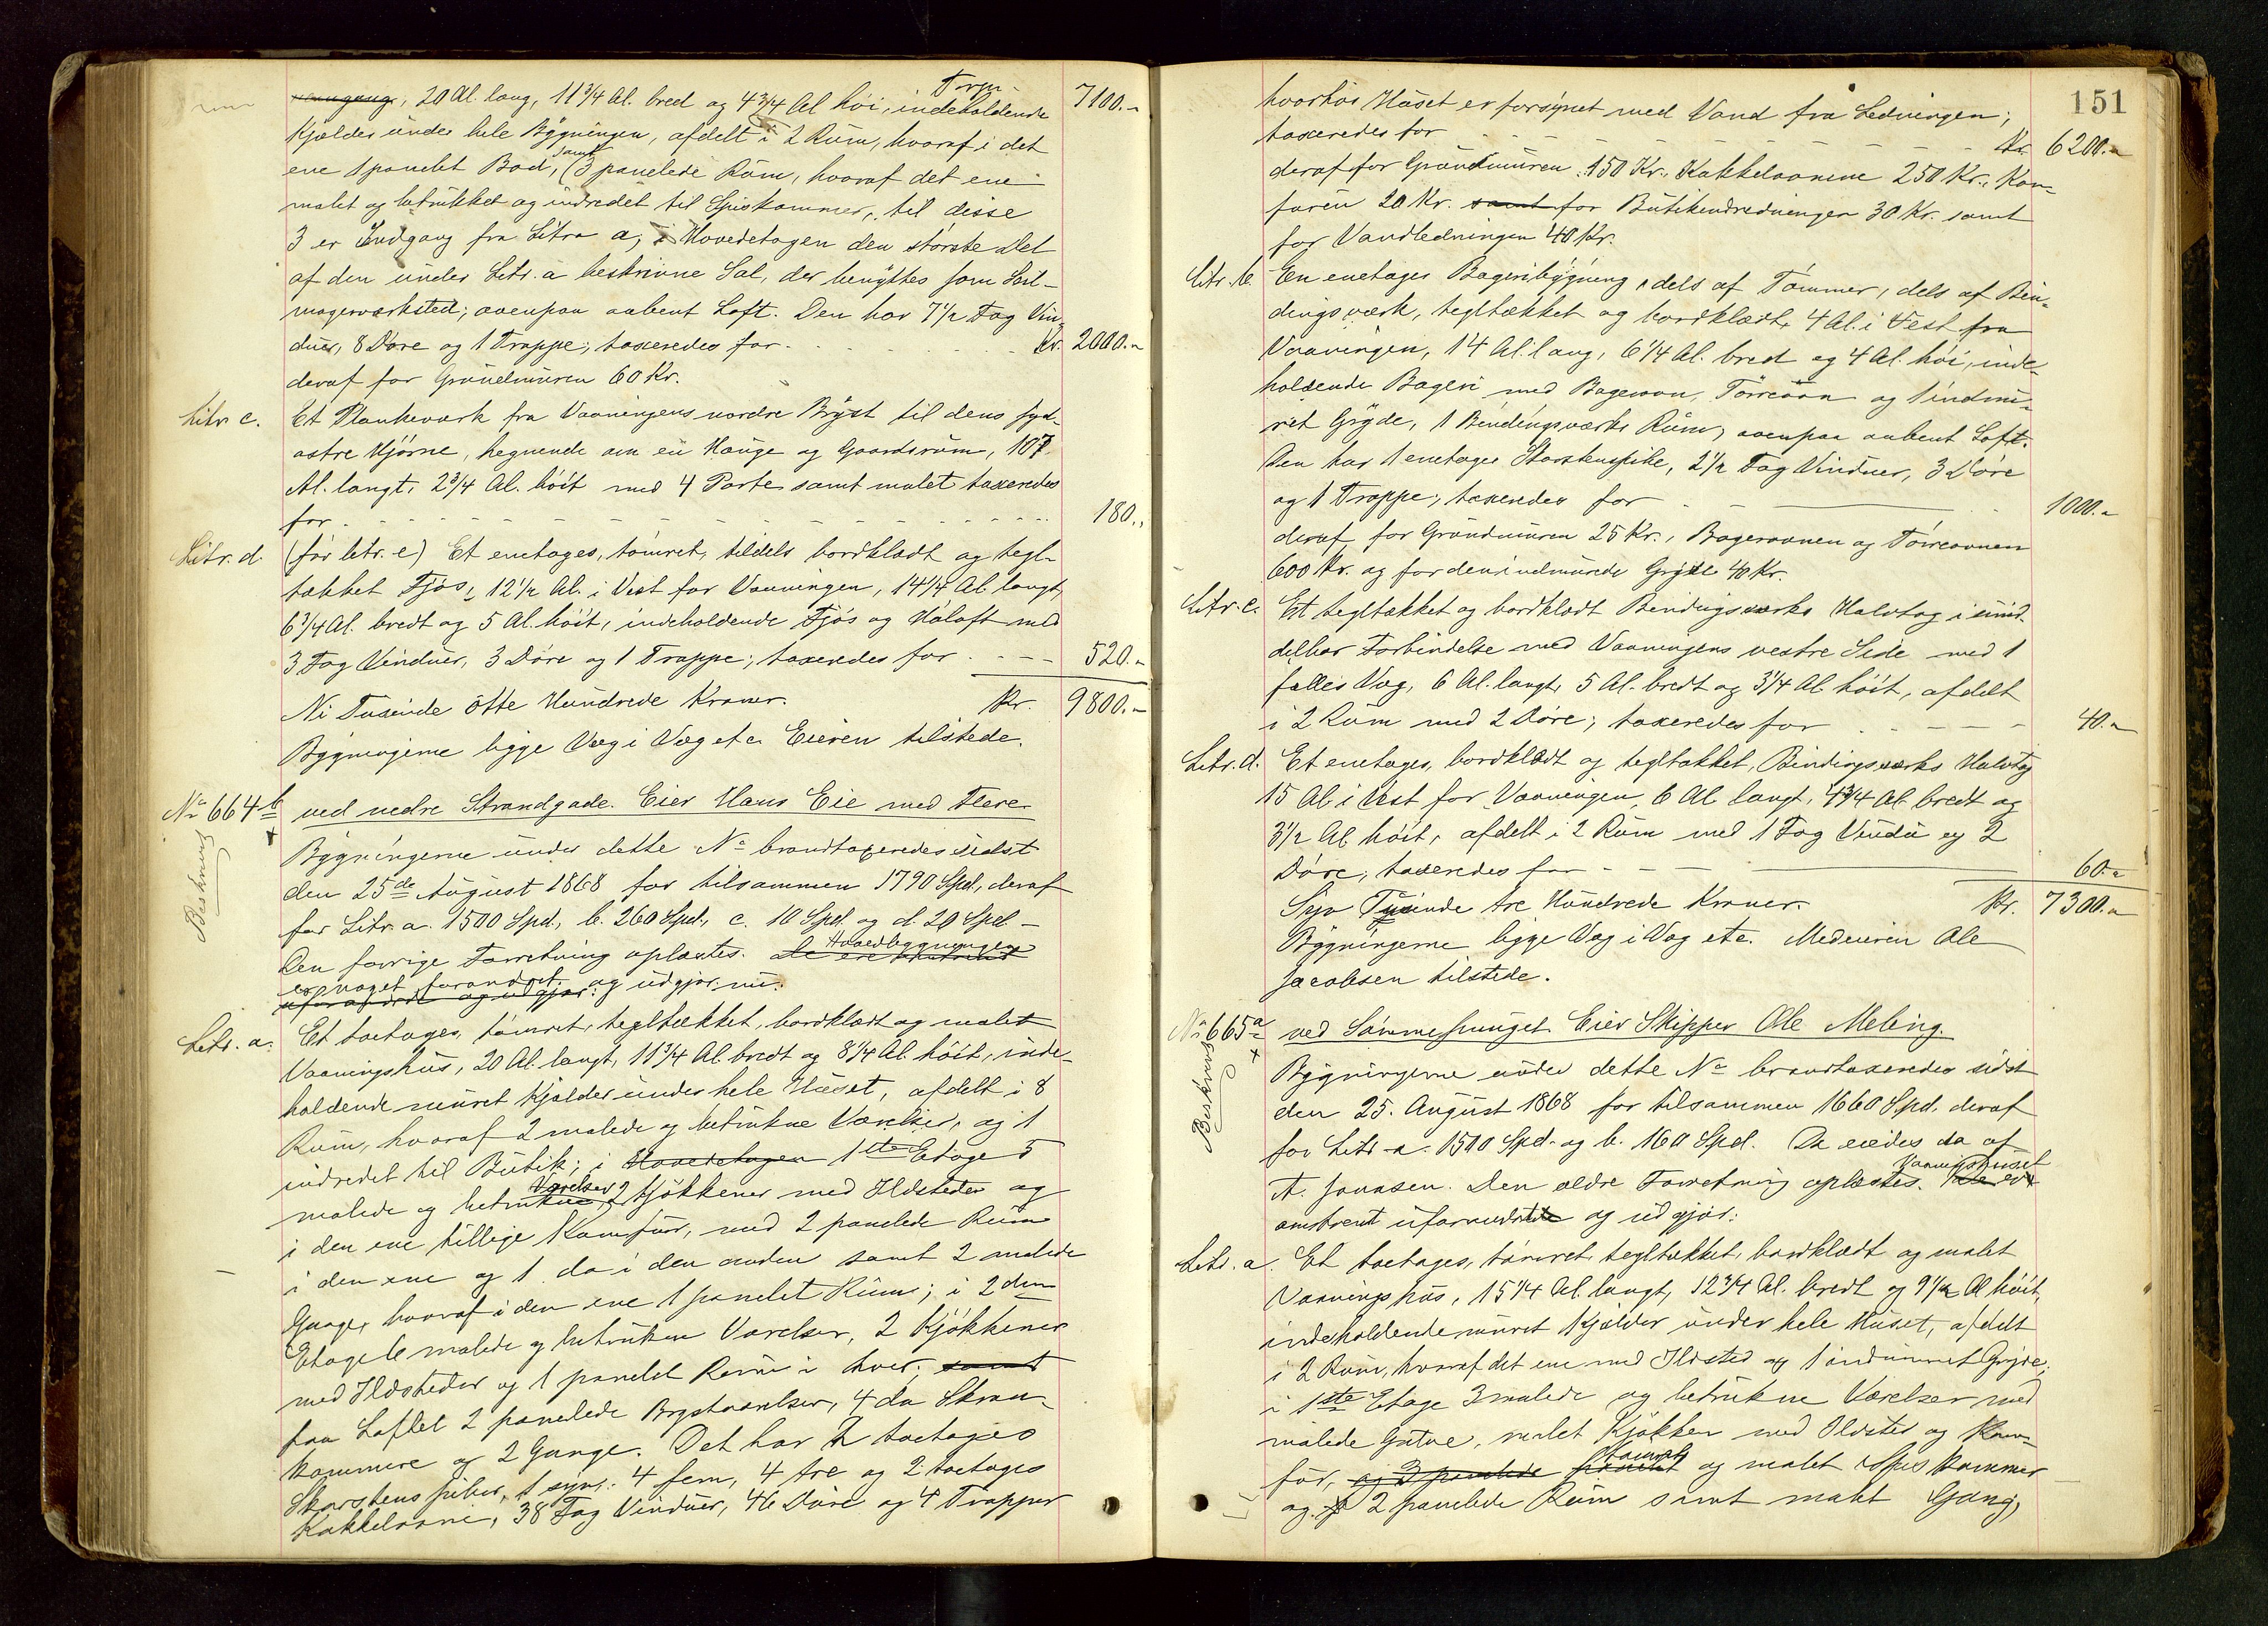 20 Al. lang, 11¾ Al. bred og 4¾ Al höi, indeholdende 7100.-
Kjælder under hele Bygningen, afdelt i 2 Rum, hvoraf i det
ene 1 panelet Bod, samt 3 panelede Rum, hvoraf det ene
malet og betrukket og indredet til Spiskammer, til disse
3 er Indgang fra Litra a, i Hovedetagen den største Del
af den under Litr. a beskrivne Sal, der benyttes som Seil-
magerværksted; ovenpaa aabent Loft. Den har 7½ Fag Vin-
duer, 8 Døre og 1 Trappe; taxeredes for Kr. 2000.-
deraf for Grundmuren 60 Kr.
Litr c. Et Plankeværk fra Vaaningens nordre Bryst til dens syd-
østre Hjørne, hegnende om en Hauge og Gaardsrum, 107
Al. langt, 2¾ Al. höit med 4 Porte samt malet taxeredes
for 180.,
Litr. d. (før litr. e) Et enetages, tömret, tildels bordklædt og tegl-
tækket Fjös, 12½ Al. i Vest for Vaaningen, 14¼ Al langt,
6¾ Al. bredt og 5 Al. höit, indeholdende Fjös og Höloft med
3 Fag Vinduer, 3 Döre og 1 Trappe; taxeredes for 520.-
Ni Tusinde otte Hundrede Kroner. Kr. 9800.-
Bygningerne ligge Væg i Væg etc. Eieren tilstede.
No 664b ved nedre Strandgade. Eier Hans Eie med Flere.
Beskrevs
Bygningerne under dette No brandtaxeredes sidst
den 25de August 1868 for tilsammen 1790 Spd., deraf
for Litr. a. 1500 Spd., b. 260 Spd., c. 10 Spd. og d. 20 Spd. -
Den forrige Forretning oplæstes. De ere Hovedbygningen
er noget forandret og udgjør nu:
uforandrede og udgjør:
Litr. a. Et toetages, tömret, tegltækket, bordklædt og malet
Vaaningshus, 20 Al. langt, 11¾ Al. bredt og 8¼ Al. höit, inde-
holdende muret Kjælder under hele Huset, afdelt i 8
Rum, hvoraf 2 malede og betrukne Værelser, og 1
indredet til Butik; i Hovedetagen 1ste Etage 5
malede og betrukne Værelser, 2 Kjökkener med Ildsteder og
i den ene tillige Komfur, med 2 panelede Rum
i den ene og 1 do i den anden samt 2 malede
Gange, hvoraf i den ene 1 panelet Rum; i 2den
Etage 6 malede og betrukne Værelser, 2 Kjökkener
med Ildsteder og 1 panelet Rum i hver; samt
paa Loftet 2 panelede Brystværelser, 4 do Skraa-
kammere og 2 Gange. Det har 2 toetages
Skorstenspiber, 1 syv, 4 fem, 4 tre og 2 toetages
Kakkelovne, 38 Fag Vinduer, 46 Döre og 4 Trapper
151
hvorhos Huset er forsynet med Vand fra Ledningen;
taxeredes for Kr. 6200.-
deraf for Grundmuren 150 Kr., Kakkelovnene 250 Kr., Kom-
furen 20 Kr. samt for Butikindredningen 30 Kr. samt
for Vandledningen 40 Kr.
Litr. b. En enetages Bageribygning, dels af Tömmer, dels af Bin-
dingsværk, tegltækket og bordklædt, 4 Al. i Vest fra
Vaaningen, 14 Al. lang, 6¼ Al. bred og 4 Al. höi, inde-
holdende Bageri med Bagerovn, Törreovn og 1 indmu-
ret Gryde, 1 Bindingsværks Rum, ovenpaa aabent Loft.
Den har 1 enetages Skorstenspibe, 2½ Fag Vinduer, 3 Döre
og 1 Trappe; taxeredes for 1000.-
deraf for Grundmuren 25 Kr., Bagerovnen og Törreovnen
600 Kr. og for den indmurede Gryde 40 Kr.
Litr. c. Et tegltækket og bordklædt Bindingsværks Halvtag i umid-
delbar Forbindelse med Vaaningens vestre Side med 1
fælles Væg, 6 Al. langt, 5 Al. bredt og 3¼ Al. höit, afdelt
i 2 Rum med 2 Döre; taxeredes for 40.-
Litr. d. Et enetages, bordklædt og tegltækket, Bindingsværks Halvtag
15 Al. i Vest for Vaaningen, 6 Al. langt, 4¾ Al. bredt og
3½ Al. höit, afdelt i 2 Rum med 1 Fag Vindu og 2
Döre; taxeredes for 60.-
Syv Tusinde tre Hundrede Kroner. Kr. 7300.-
Bygningerne ligge Væg i Væg etc. Medeieren Ole
Jacobsen tilstede.
No 665a ved Sömmesmuget. Eier Skipper Ole Meling.
Beskrevs
Bygningerne under dette No brandtaxeredes sidst
den 25. August 1868 for tilsammen 1660 Spd. deraf
for Litr. a. 1500 Spd. og b. 160 Spd. De eiedes da af
A. Jonasen. Den ældre Forretning oplæstes. Vaaningshuset er
omtrent uforandret og udgjör:
Litr. a. Et toetages, tömret, tegltækket, bordklædt og malet
Vaaningshus, 15¼ Al. langt, 12¾ Al. bredt og 9½ Al höit,
indeholdende muret Kjælder under hele Huset, afdelt
i 2 Rum, hvoraf det ene med Ildsted og 1 indmuret Gryde;
i 1ste Etage 3 malede og betrukne Værelser med
malede Gulve, malet Kjökken med Ildsted og Kom-
fur, og 3 panelede og malet Spiskammer
og 2 panelede Rum samt malet Gang,